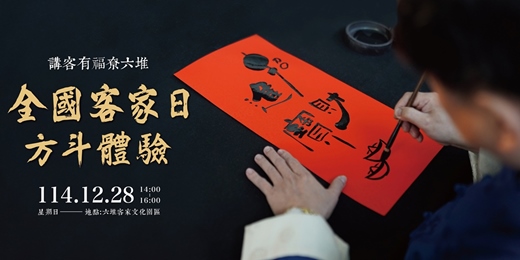 講客有福寮六堆
全國客家日
方斗體驗
114.12.28 14:00-16:00
星期日——地點:六堆客家文化園區